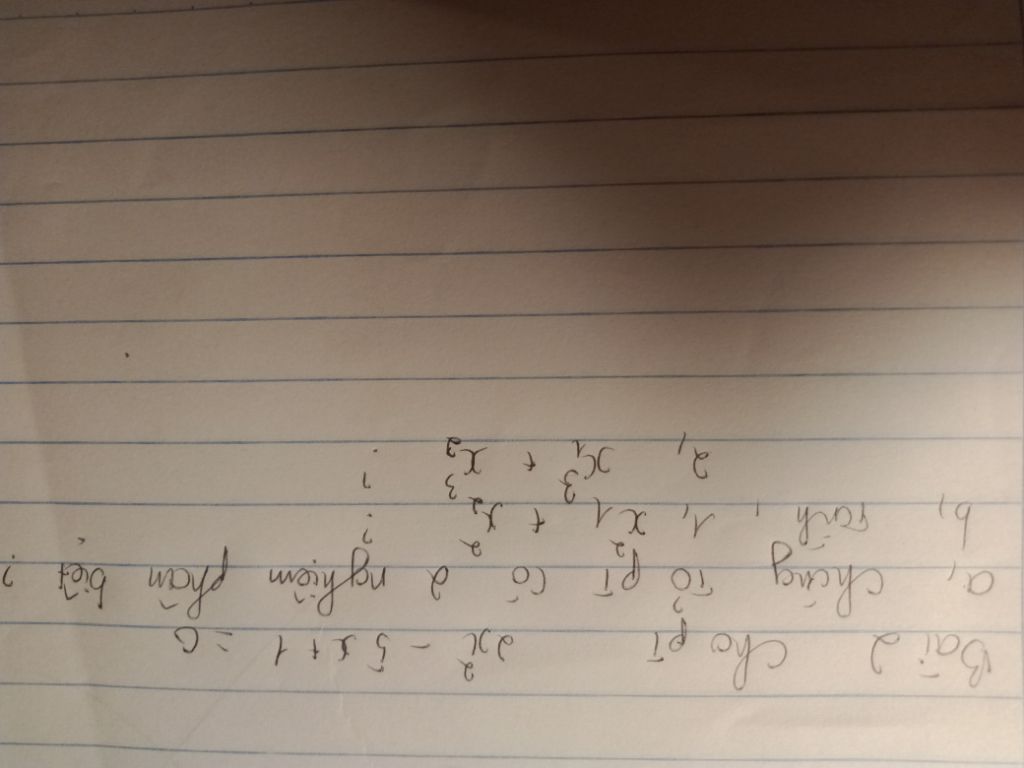 Bài 2 cho pt 2x² - 5x + 1 = 0
a, chứng tỏ pt có 2 nghiệm phân biệt ?
b, Tính, 1, x₁² + x₂² ?
2, x₁³ + x₂³ ?